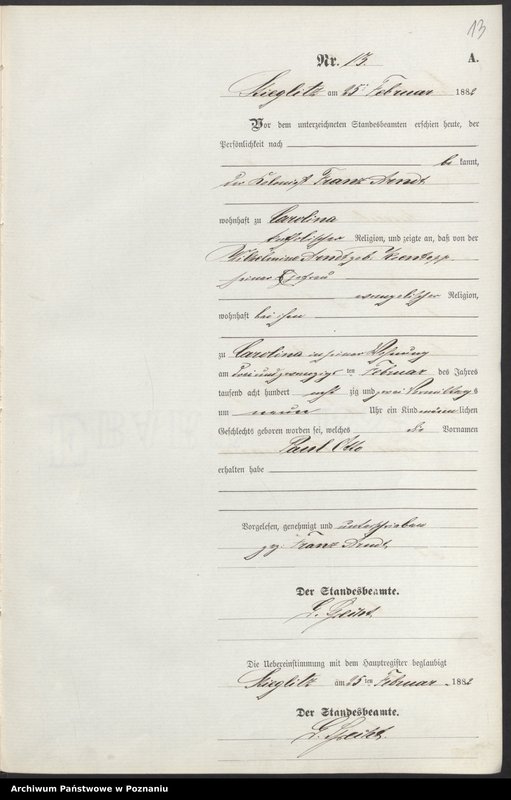 13
Nr. 13. A.
Stieglitz am 25ten Februar 1882
Vor dem unterzeichneten Standesbeamten erschien heute, der
Persönlichkeit nach
be kannt,
der Kolonist Franz Arndt
wohnhaft zu Carolina
katholischer Religion, und zeigte an, daß von der
Wilhelmine Arndt geb.
seiner Ehefrau
evangelischer Religion,
wohnhaft bei ihm
zu Carolina in seiner Wohnung
am dreiundzwanzigsten ten Februar des Jahres
tausend acht hundert acht zig und zwei Vormittags
um neun Uhr ein Kind männlichen
Geschlechts geboren worden sei, welches die Vornamen
Paul Otto
erhalten habe
Vorgelesen, genehmigt und unterschrieben
gez. Franz Arndt.
Der Standesbeamte.
Die Uebereinstimmung mit dem Hauptregister beglaubigt
Stieglitz am 25 ten Februar 1882
Der Standesbeamte.
Archiwum Państwowe w Poznaniu